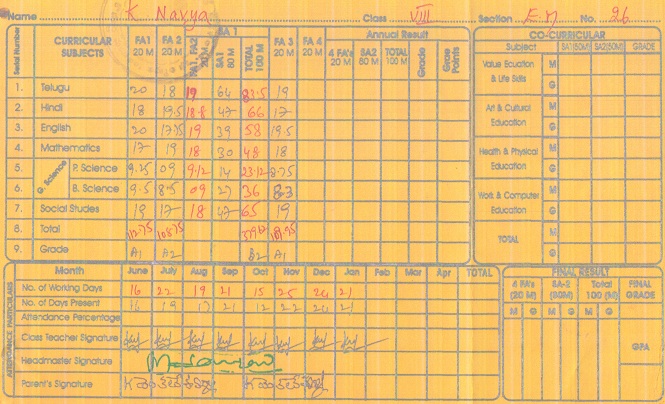 Name K Navya Class VIII Section E.M No. 26
Serial Number CURRICULAR SUBJECTS FA 1 20 M FA 2 20 M FA1, FA2 20 M SA 1 SA1 80 M TOTAL 100 M FA 3 20 M FA 4 20 M Annual Result 4 FA's 20 M SA2 80 M TOTAL 100 M Grade Grade Points
1. Telugu 20 18 19 64 83.5 19
2. Hindi 18 19.5 18.8 47 66 17
3. English 20 17.75 19 39 58 19.5
4. Mathematics 17 19 18 30 48 18
G. Science
5. P. Science 9.25 09 9.12 14 23.12 8.75
6. B. Science 9.5 8.5 09 27 36 8.3
7. Social Studies 18 17 18 47 65 19
8. Total 112.75 108.75 109.75
9. Grade A1 A2 B2 A1
CO-CURRICULAR
Subject SA1(50M) SA2(50M) GRADE
Value Equation & Life Skills M G
Art & Cultural Education M G
Health & Physical Education M G
Work & Computer Education M G
TOTAL M G
ATTENDANCE PARTICULARS
Month June July Aug Sep Oct Nov Dec Jan Feb Mar Apr TOTAL
No. of Working Days 16 22 19 21 15 25 24 21
No. of Days Present 16 19 17 21 12 22 24 21
Attendance Percentage
Class Teacher Signature
Headmaster Signature
Parent's Signature
FINAL RESULT
4 FA's (20 M) SA-2 (80M) Total 100 (M) FINAL GRADE
M G M G M G
GPA